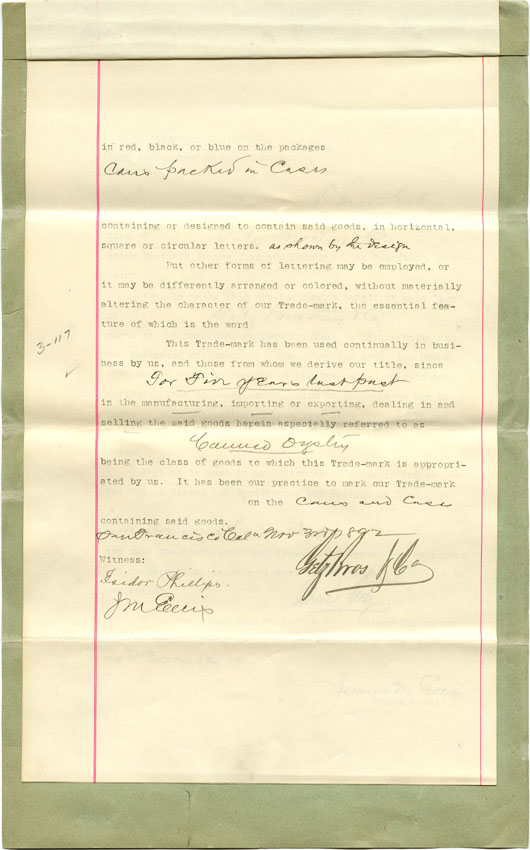 in red, black, or blue on the packages
Cans packed in Cases
containing or designed to contain said goods, in horizontal,
square or circular letters, as shown by the design
But other forms of lettering may be employed, or
it may be differently arranged or colored, without materially
altering the character of our Trade-mark, the essential fea-
ture of which is the word
This Trade-mark has been used continually in busi-
3-117
ness by us, and those from whom we derive our title, since
For Five years last past
in the manufacturing, importing or exporting, dealing in and
selling the said goods herein especially referred to as
Canned Oysters
being the class of goods to which this Trade-mark is appropri-
ated by us. It has been our practice to mark our Trade-mark
on the Cans and Cases
containing said goods.
San Francisco Cala Nov 3rd 1892
Witness:
Getz Bros & Co
Isidor Phillips.
J M Ellis
James M. Ellis